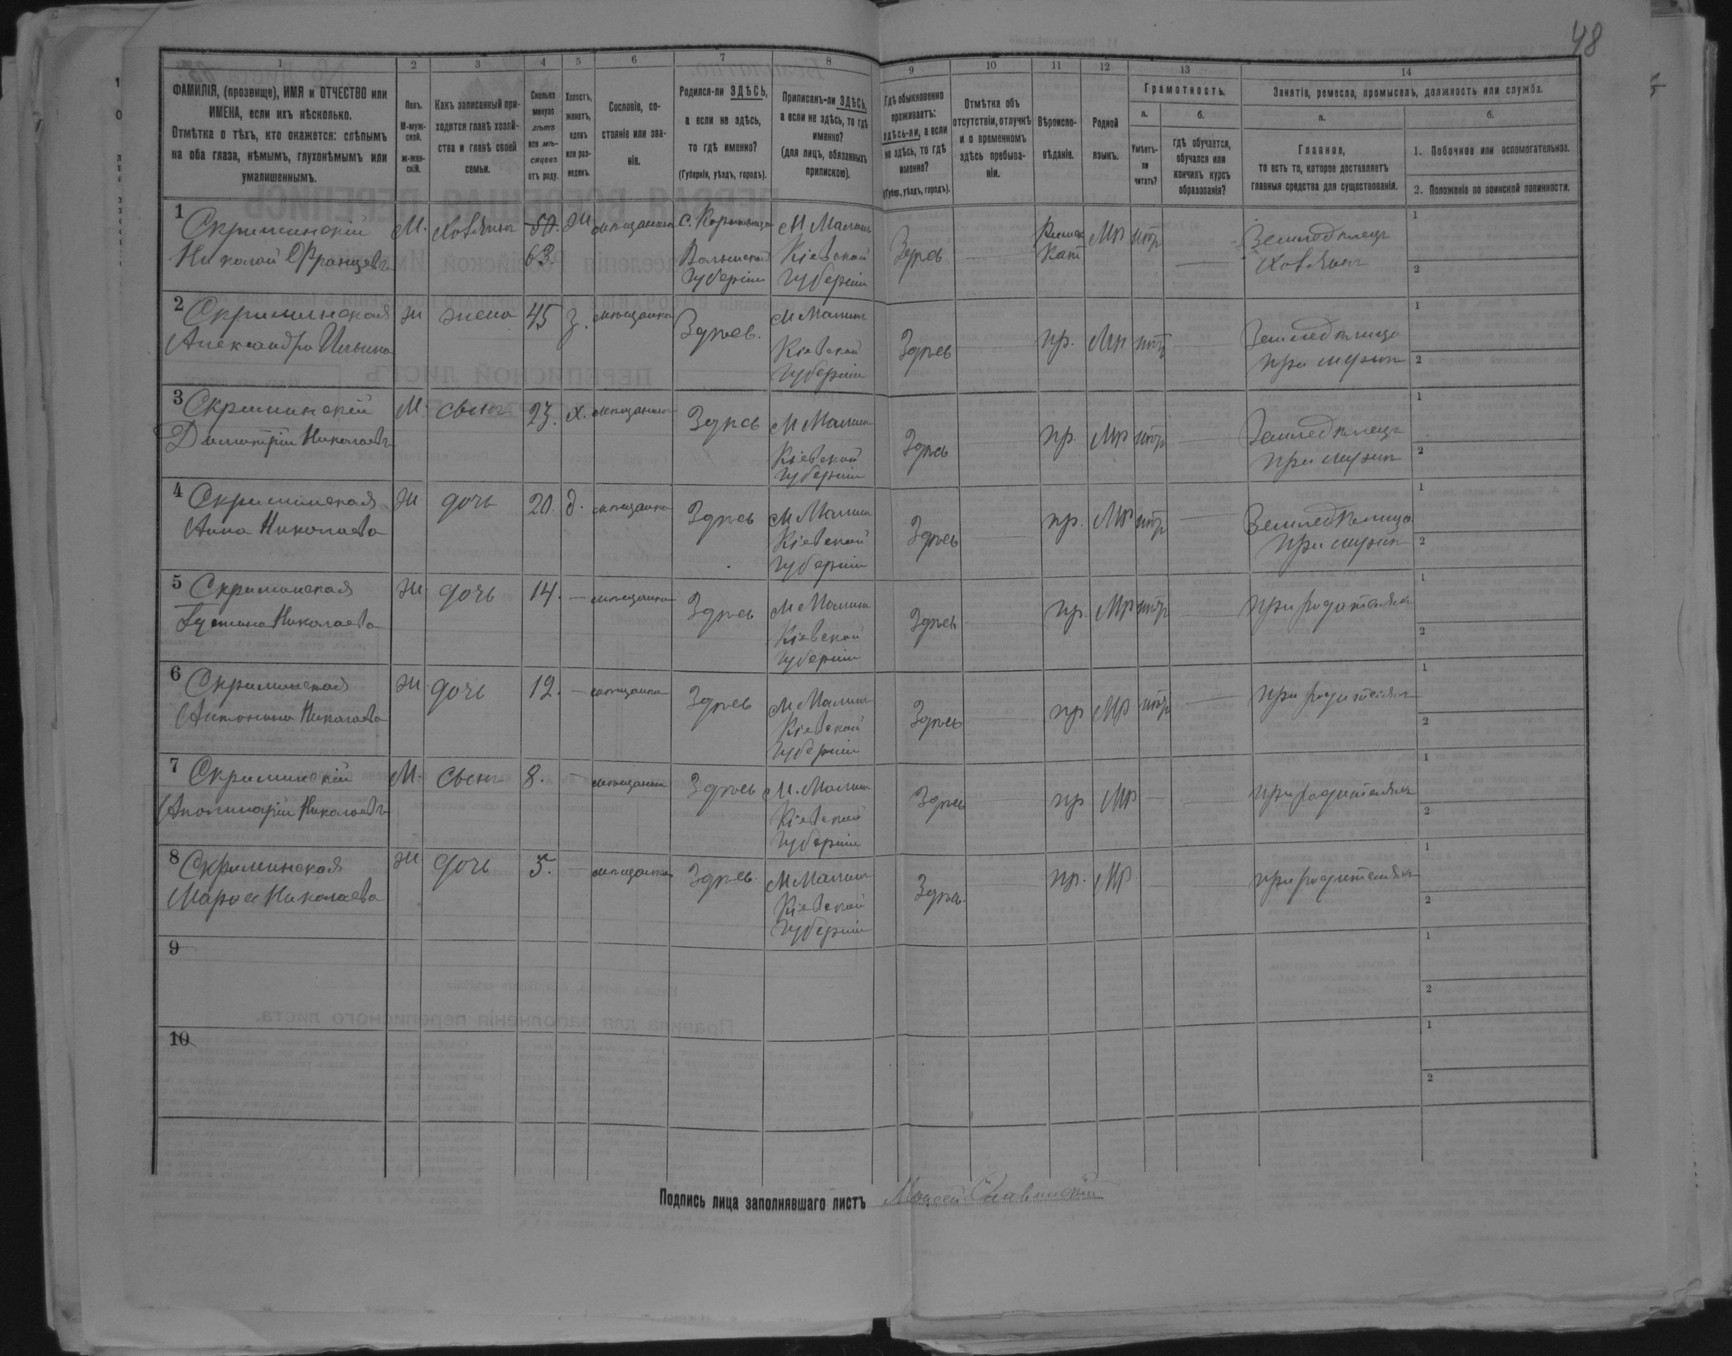 48
1 2 3 4 5 6 7 8 9 10 11 12 13 14
ФАМИЛІЯ, (прозвище), ИМЯ и ОТЧЕСТВО или
ИМЕНА, если ихъ нѣсколько.
Отмѣтка о тѣхъ, кто окажется: слѣпымъ
на оба глаза, нѣмымъ, глухонѣмымъ или
умалишеннымъ.
Полъ.
М-муж-
ской.
ж-жен-
скій.
Какъ записанный при-
ходится главѣ хозяй-
ства и главѣ своей
семьи.
Сколько
минуло
лѣтъ
или мѣ-
сяцевъ
отъ роду.
Холостъ,
женатъ,
вдовъ
или раз-
веденъ.
Сословіе, со-
стояніе или зва-
ніе.
Родился-ли ЗДѢСЬ,
а если не здѣсь,
то гдѣ именно?
(Губернія, уѣздъ, городъ).
Приписанъ-ли ЗДѢСЬ,
а если не здѣсь, то гдѣ
именно?
(для лицъ, обязанныхъ
припискою).
Гдѣ обыкновенно
проживаетъ:
здѣсь-ли, а если
не здѣсь, то гдѣ
именно?
(Губерн., уѣздъ, городъ).
Отмѣтка объ
отсутствіи, отлучкѣ
и о временномъ
здѣсь пребыва-
ніи.
Вѣроиспо-
вѣданіе.
Родной
языкъ.
Грамотность.
а.
Умѣетъ-
ли
читать?
б.
гдѣ обучается,
обучался или
кончилъ курсъ
образованія?
Занятія, ремесла, промыселъ, должность или служба.
а.
Главное,
то есть то, которое доставляетъ
главныя средства для существованія.
б.
1. Побочное или вспомогательное.
2. Положеніе по воинской повинности.
1 Скриминскій М. хозяинъ 50. ж мѣщанинъ с. М Малинъ Здѣсь Мр нтр Земледѣлецъ 1
Николай Францевъ 63 Волынской Кіевской Кат хозяинъ 2
Губерніи Губерніи
2 Скриминская ж жена 45 з. мѣщанка Здѣсь. М Малинъ Здѣсь пр. Мр нтр Земледѣлица 1
Александра Ильина Кіевской при мужѣ 2
Губерніи
3 Скриминскій М. сынъ 23. х. мѣщанинъ Здѣсь М Малинъ Здѣсь пр. Мр нтр Земледѣлецъ 1
Димитрій Николаевъ Кіевской при мужѣ 2
Губерніи
4 Скриминская ж дочь 20. д. мѣщанка Здѣсь М Малинъ Здѣсь пр. Мр нтр Земледѣлица 1
Анна Николаева Кіевской при мужѣ 2
Губерніи
5 Скриминская ж дочь 14. — мѣщанка Здѣсь М Малинъ Здѣсь пр. Мр нтр при родителяхъ 1
Николаева Кіевской 2
Губерніи
6 Скриминская ж дочь 12. — мѣщанка Здѣсь М Малинъ Здѣсь пр Мр нтр при родителяхъ 1
Антонина Николаева Кіевской 2
Губерніи
7 Скриминскій М. сынъ 8. — мѣщанинъ Здѣсь М. Малинъ Здѣсь пр Мр — при родителяхъ 1
Аполинарій Николаевъ Кіевской 2
Губерніи
8 Скриминская ж дочь 5. — мѣщанка Здѣсь М Малинъ Здѣсь. пр. Мр при родителяхъ 1
Марія Николаева Кіевской 2
Губерніи
9 1
2
10 1
2
Подпись лица заполнявшаго листъ